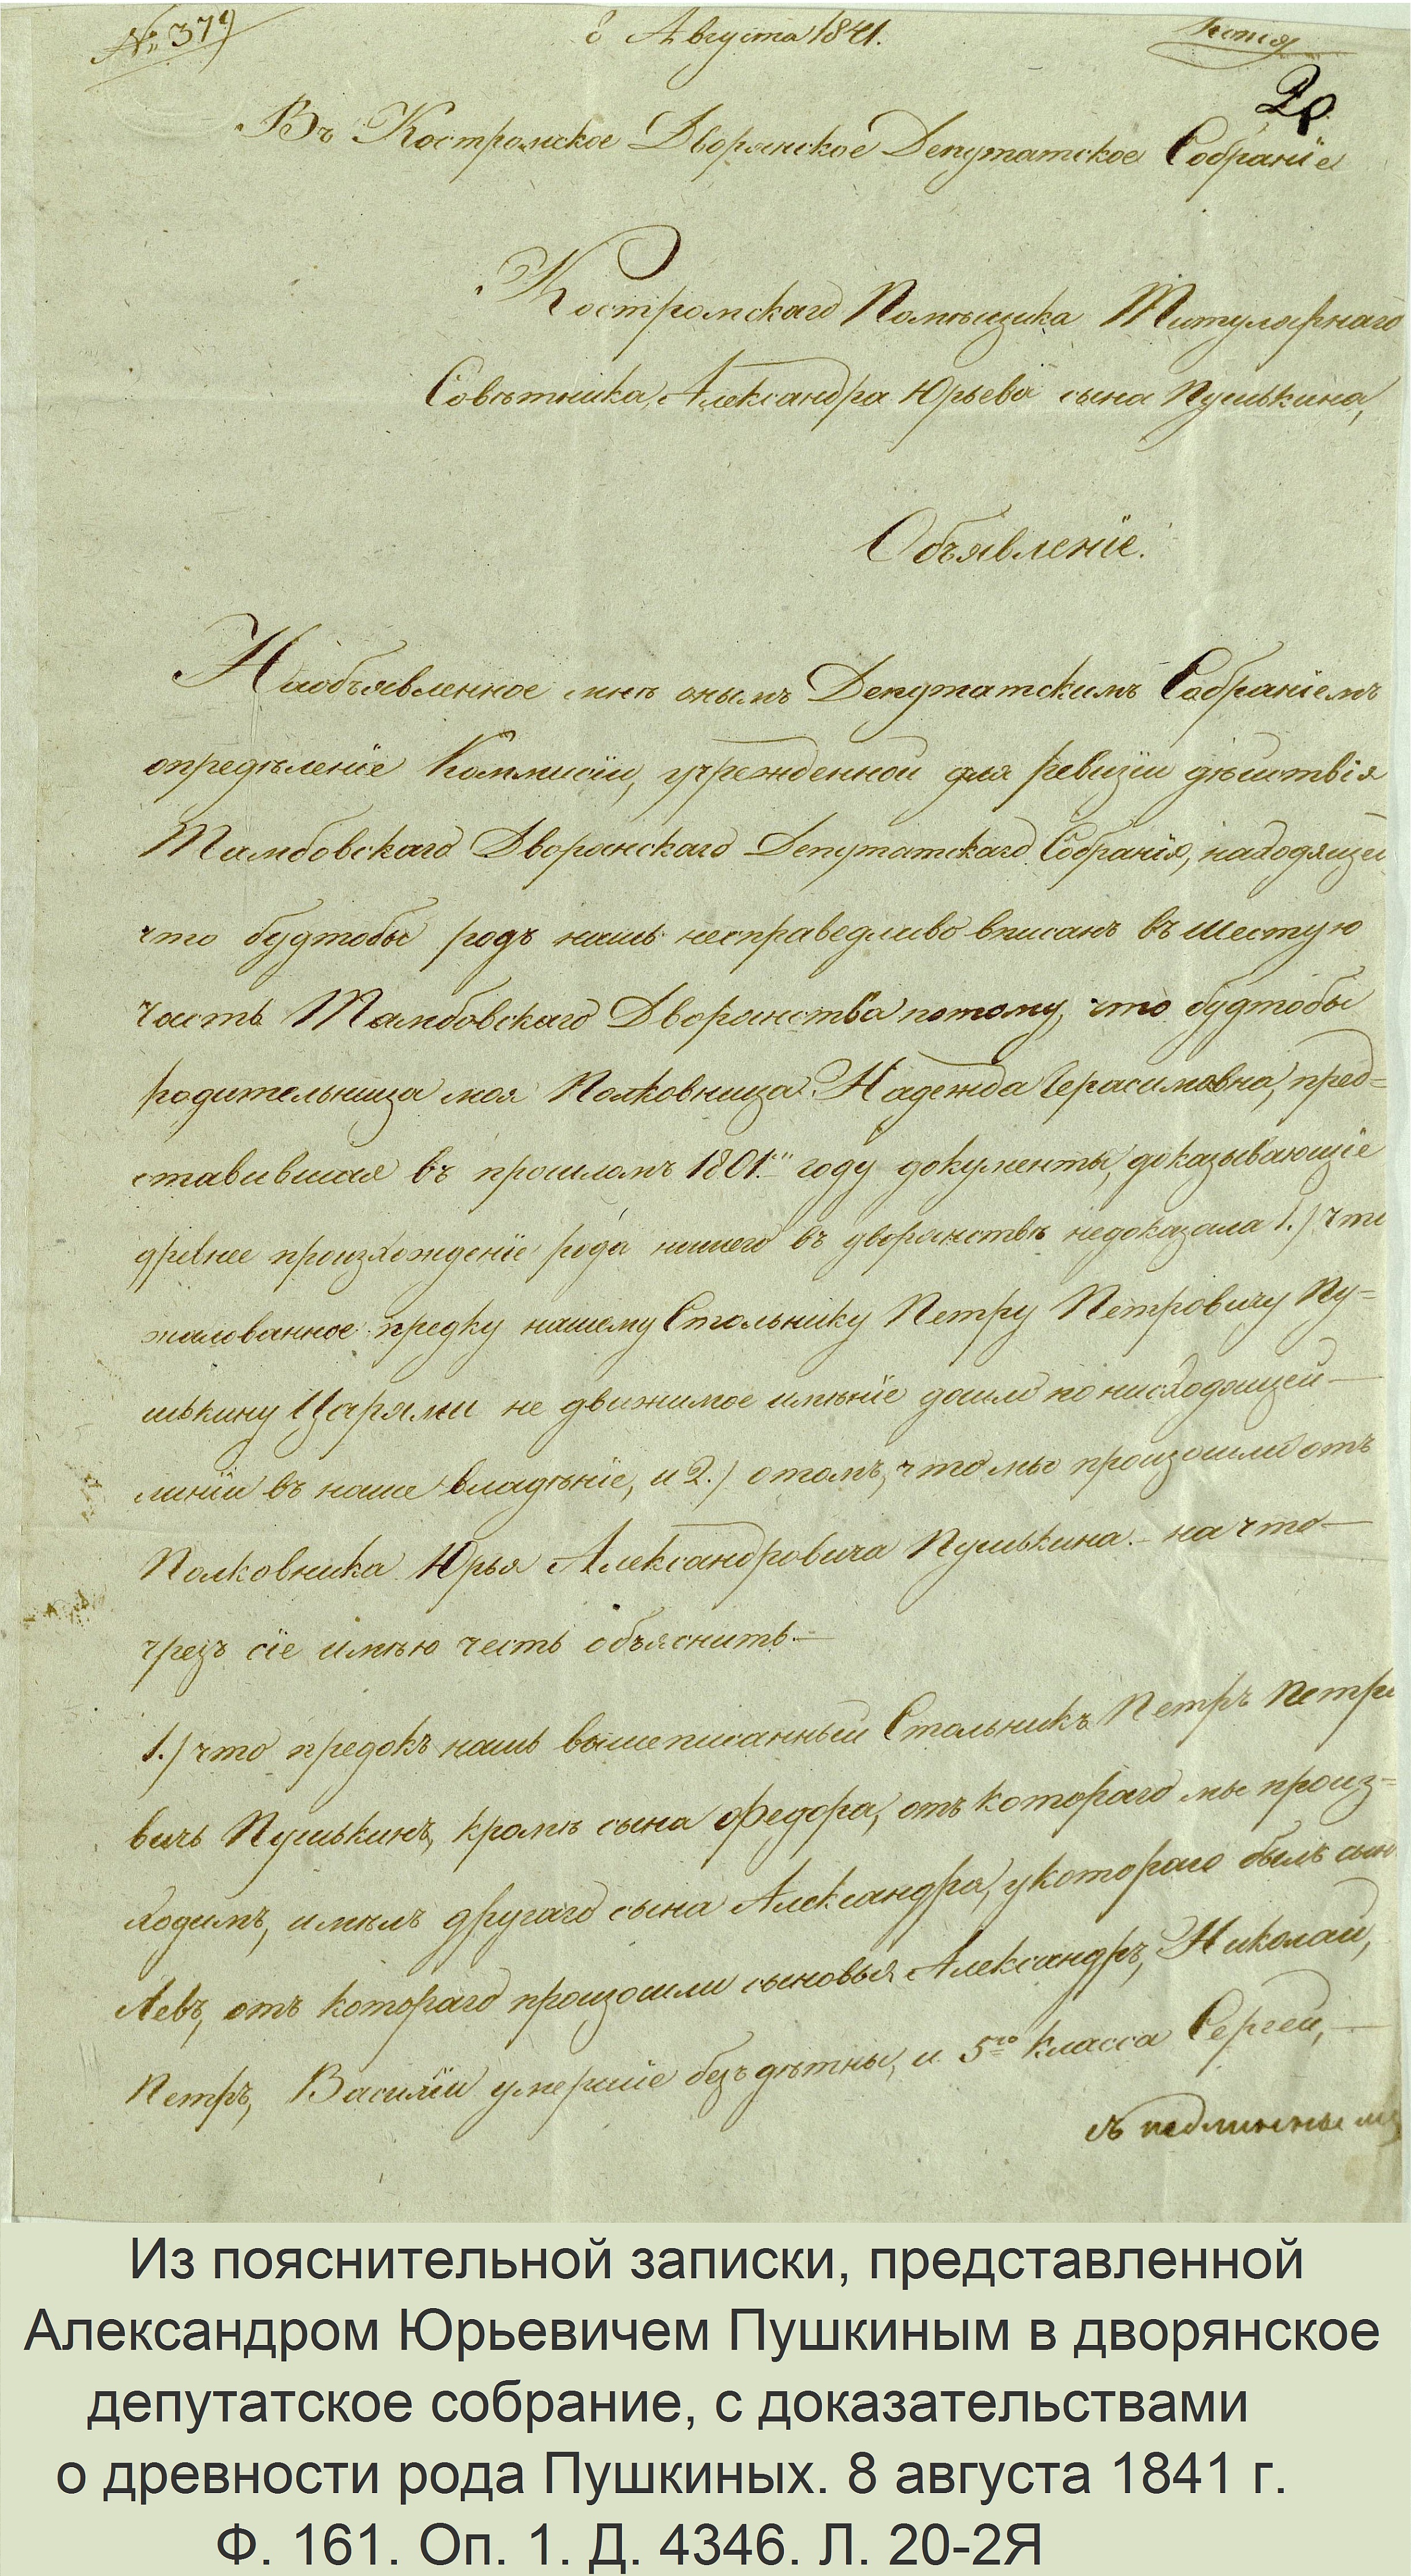 № 379
8 Августа 1841.
Копія
20
Въ Костромское Дворянское Депутатское Собраніе
Костромскаго Помѣщика Титулярнаго
Совѣтника, Александра Юрьева сына Пушькина,
Объявленіе.
Наобъявленное мнѣ онымъ Депутатскимъ Собраніемъ
опредѣленіе Коммисіи, учрежденной для ревизіи дѣйствія
Тамбовскаго Дворянскаго Депутатскаго Собранія, находящей
что будтобы родъ нашъ несправедливо вписанъ въ шестую
часть Тамбовскаго Дворянства потому, что будтобы
родительница моя Полковница Надежда Герасимовна, пред=
ставившая въ прошломъ 1801.м году документы, доказывающіе
древнее произхожденіе рода нашего въ дворянствѣ недоказала 1.) что
жалованное предку нашему Стольнику Петру Петровичу Пу=
шькину Царями не движимое имѣніе дошло по нисходящей—
линіи въ наше владѣніе, и 2.) о томъ, что мы произошли отъ
Полковника Юрья Александровича Пушькина.— на что—
чрезъ сіе имѣю честь объяснить.—
1.) что предокъ нашъ вышеписанный Стольникъ Петръ Петро
вичь Пушькинъ, кромѣ сына Федора, отъ котораго мы произ=
ходимъ, имѣлъ другаго сына Александра, у котораго былъ сын
Левъ, отъ котораго произошли сыновья Александръ, Николай,
Петръ, Василій умершіе бездѣтны, и 5го класса Сергей,—
съ подлинны
Из пояснительной записки, представленной
Александром Юрьевичем Пушкиным в дворянское
депутатское собрание, с доказательствами
о древности рода Пушкиных. 8 августа 1841 г.
Ф. 161. Оп. 1. Д. 4346. Л. 20-2Я